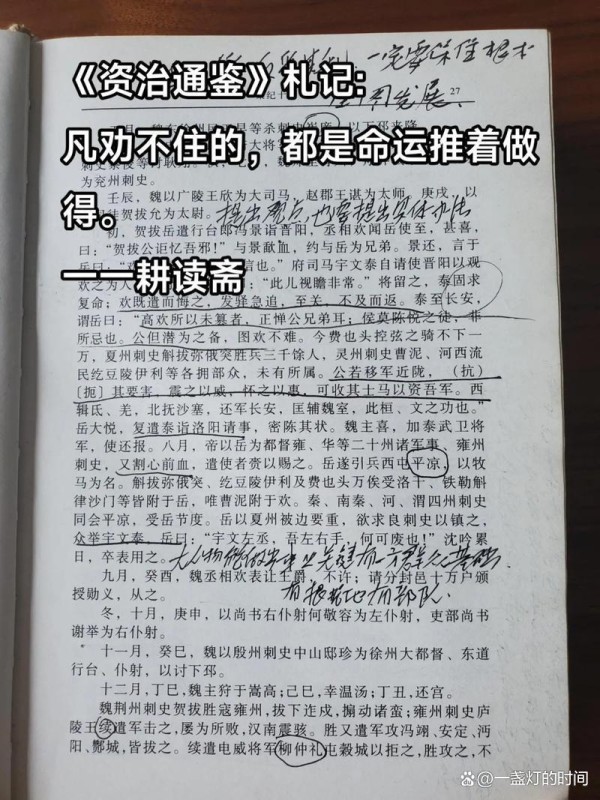 一定要保住根本
《资治通鉴》札记:
27
全国发展、
凡劝不住的，都是命运推着做
得。
为兖州刺史。
壬辰，魏以广陵王欣为大司马，赵郡王谌为太师，庚戌，以
贺拔允为太尉。
提出观点也要提出具体办法
初，贺拔岳遣行台郎冯景诣晋阳，丞相欢闻岳使至，甚喜，
曰：“贺拔公讵忆吾邪！”与景歃血，约与岳为兄弟。景还，言于
——耕读斋
府司马宇文泰自请使晋阳以观
欢之为人
“此儿视瞻非常。”将留之，泰固求
复命；欢既遣而悔之，发驿急追，至关，不及而返。泰至长安，
谓岳曰：“高欢所以未篡者，正惮公兄弟耳；侯莫陈悦之徒，非
所忌也。公但潜为之备，图欢不难。今费也头控弦之骑不下一
万，夏州刺史斛拔弥俄突胜兵三千馀人，灵州刺史曹泥、河西流
民纥豆陵伊利等各拥部众，未有所属。公若移军近陇，（抗）
〔扼〕其要害，震之以威，怀之以惠，可收其士马以资吾军。西
辑氐、羌，北抚沙塞，还军长安，匡辅魏室，此桓、文之功也。”
岳大悦，复遣泰诣洛阳请事，密陈其状。魏主喜，加泰武卫将
军，使还报。八月，帝以岳为都督雍、华等二十州诸军事、雍州
刺史，又割心前血，遣使者赍以赐之。岳遂引兵西屯平凉，以牧
马为名。斛拔弥俄突、纥豆陵伊利及费也头万俟受洛干、铁勒斛
律沙门等皆附于岳，唯曹泥附于欢。秦、南秦、河、渭四州刺史
同会平凉，受岳节度。岳以夏州被边要重，欲求良刺史以镇之，
众举宇文泰，岳曰：“宇文左丞，吾左右手，何可废也！”沈吟累
日，卒表用之。
九月，癸酉，魏丞相欢表让王爵，不许；请分封邑十万户颁
授勋义，从之。
有根据地有部队
冬，十月，庚申，以尚书右仆射何敬容为左仆射，吏部尚书
谢举为右仆射。
十一月，癸巳，魏以殷州刺史中山邸珍为徐州大都督、东道
行台、仆射，以讨下邳。
十二月，丁巳，魏主狩于嵩高；己巳，幸温汤；丁丑，还宫。
魏荆州刺史贺拔胜寇雍州，拔下迮戍，搧动诸蛮；雍州刺史庐
陵王续遣军击之，屡为所败，汉南震骇。胜又遣军攻冯翊、安定、沔
阳、酂城，皆拔之。续遣电威将军柳仲礼屯穀城以拒之，胜攻之，不
@一盏灯的时间